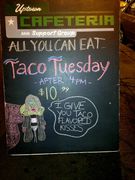 Uptown
CAFETERIA
and Support Group
ALL YOU CAN EAT
Taco Tuesday
AFTER 4PM-
$10.99
I GIVE
YOU TACO
FLAVORED
KISSES